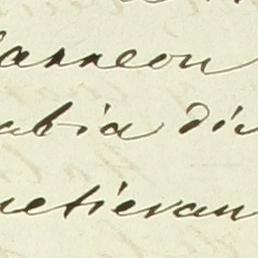 arreon
abia di
metieran